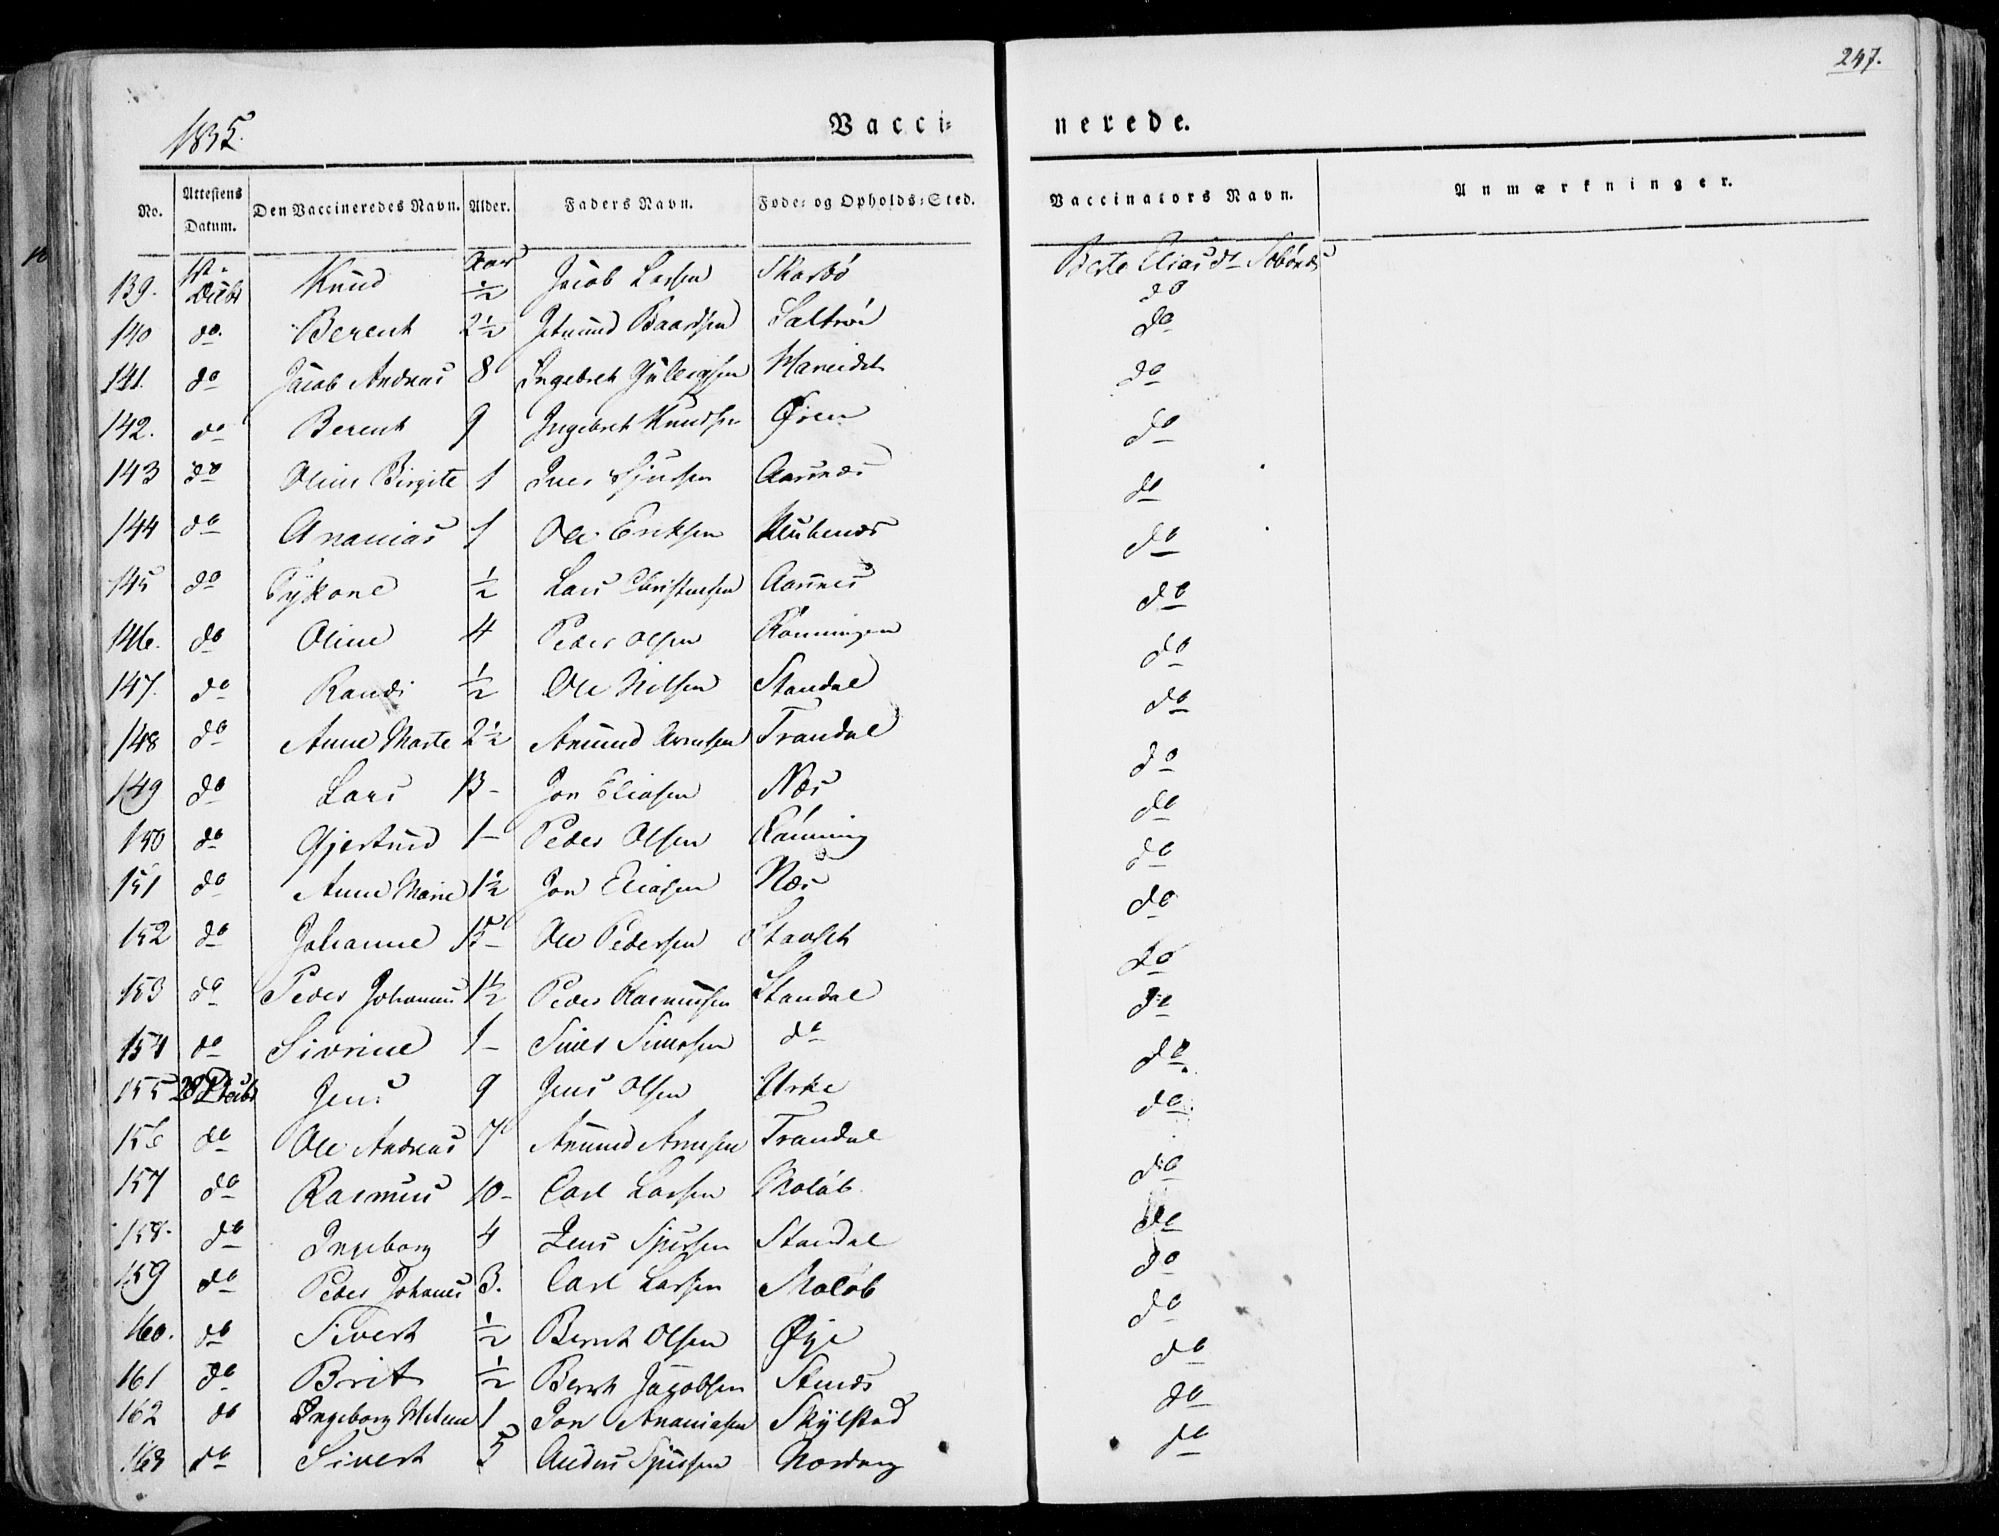 247.
1835.
Vacci= nerede.
No. Attestens Datum. Den Vaccineredes Navn. Alder. Faders Navn. Føde= og Opholds=Sted. Vaccinators Navn. Anmærkninger.
139. Knud Aar ½ Jacob Larsen Skarbø Berte Elias dr
do
140 do. Berent 2½ Baardsen Saltrøe do
141. do Jacob Andreas 8 Ingebret Mareidet do
142. do Berent 9 Ingebret Knudsen Øien do
143 do Oline Birgite 1 Iver Aarsnæs do
144 do Ananias 1 Ole Eriksen Klubenæs do
145 do ½ Lars Christensen Aarsnes do
146. do Oline 4 Peder Olsen Rønningen do
147. do Randi ½ Ole Nilsen Standal do
148 do Anne Marte 2½ Amund Arnesen Trandal do
149 do Lars 13- Jon Eliasen Næs do
150 do Gjertrud 1- Peder Olsen Rønning do
151 do Anne Marie 1½ Jon Eliasen Næs do
152 do Johanne Ole Pedersen Stavset do
153 do Peder Johannes 1½ Peder Rasmussen Standal do
154 do Sivrine 1- Simen Simesen do do
155 28 Decbr Jens 9 Jens Olsen Urke do
156 do Ole Andreas 7 Amund Arnesen Trandal do
157 do Rasmus 10- Carl Larsen Moløb. do
158. do Ingeborg 4 Jens Standal do
159 do Peder Johanes 3. Carl Larsen Moløb do
160. do Sivert ½ Bernt Olsen Øye do
161 do Brit ½ Bernt Jacobsen Stenæs do
162 do Ingeborg 1 Jon Ananiasen Skylstad do
163 do Sivert 5 Anders do